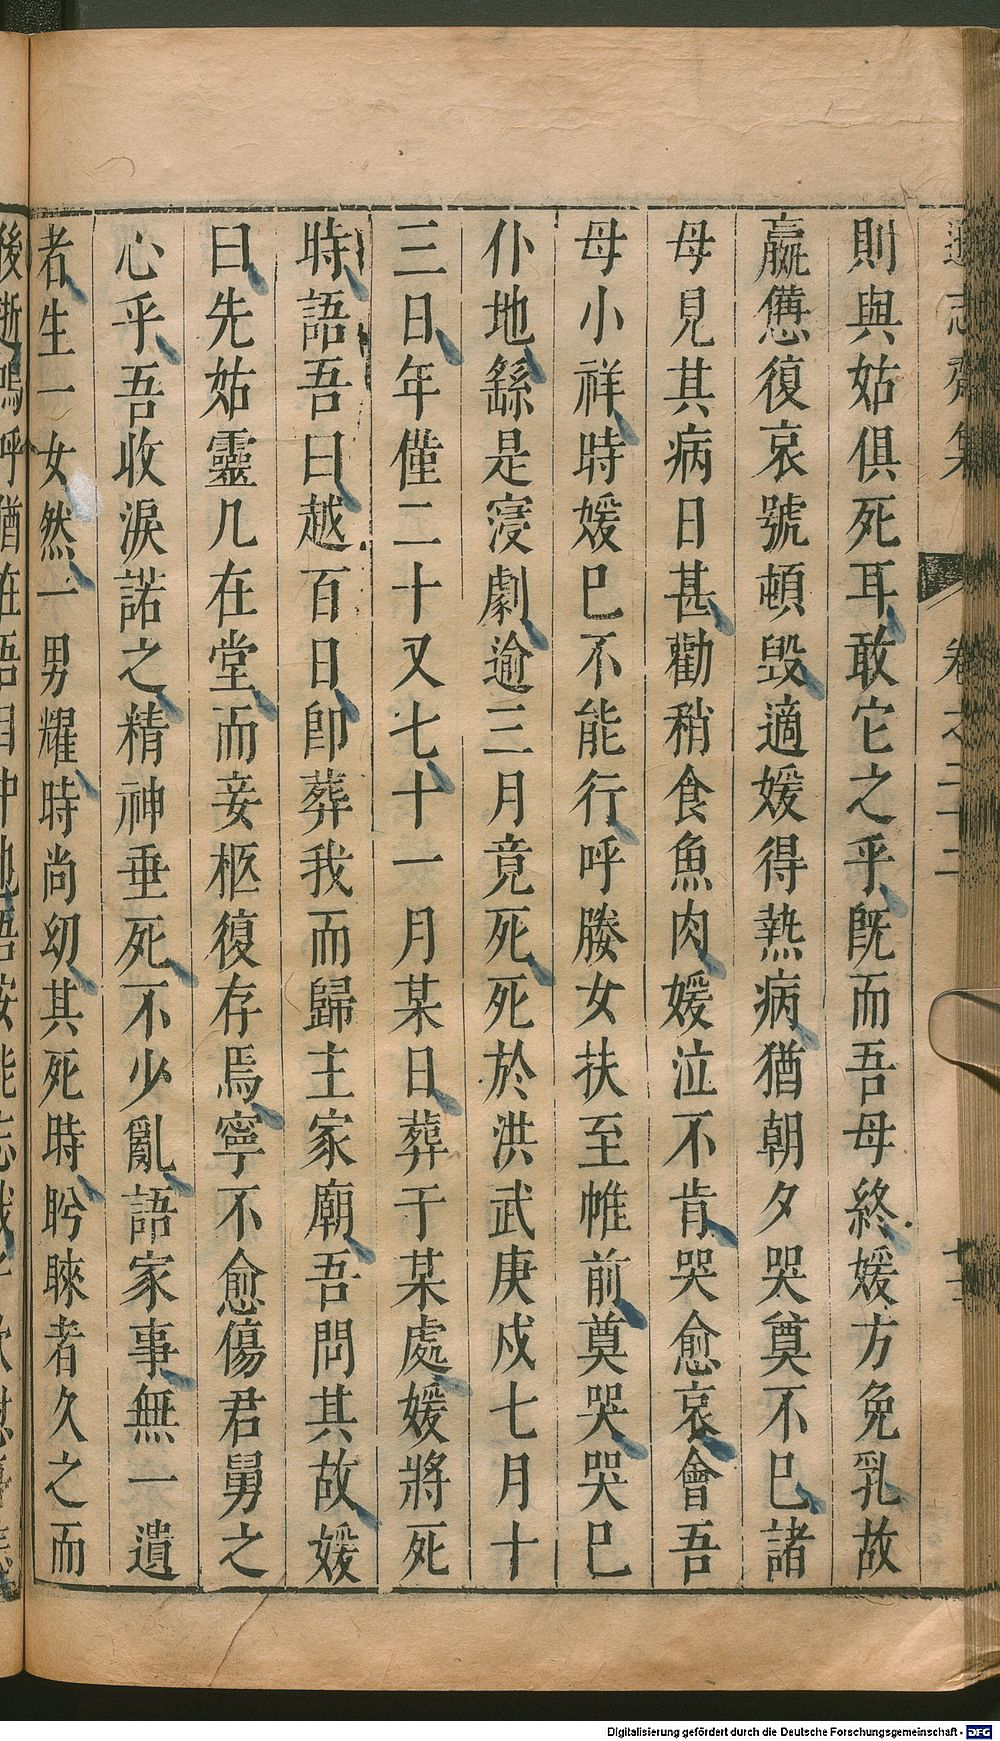 遜志齋集 卷之二十二
則與姑俱死耳敢它之乎旣而吾母終媛方免乳故
羸憊復哀號頓毀適媛得熱病猶朝夕哭奠不巳諸
母見其病日甚勸稍食魚肉媛泣不肯哭愈哀會吾
母小祥時媛巳不能行呼媵女扶至帷前奠哭哭巳
仆地繇是寖劇逾三月竟死死於洪武庚戍七月十
三日年僅二十又七十一月某日葬于某處媛將死
時語吾曰越百日卽葬我而歸主家廟吾問其故媛
曰先姑靈几在堂而妾柩復存焉寧不愈傷君舅之
心乎吾收淚諾之精神垂死不少亂語家事無一遺
者生一女然一男耀時尚幼其死時盻睞者久之而
Digitalisierung gefördert durch die Deutsche Forschungsgemeinschaft - DFG